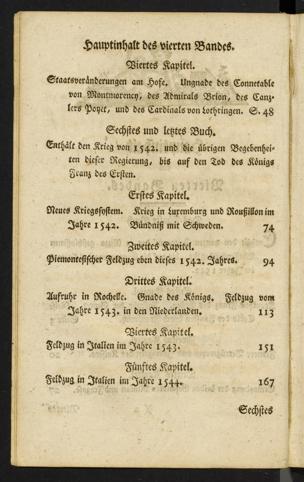 Hauptinhalt des vierten Bandes.
Viertes Kapitel.
Staatsveränderungen am Hofe. Ungnade des Connetable
von Montmorency, des Admirals Brion, des Canz-
lers Poyet, und des Cardinals von Lothringen. S. 48
Sechstes und letztes Buch.
Enthält den Krieg von 1542. und die übrigen Begebenhei-
ten dieser Regierung, bis auf den Tod des Königs
Franz des Ersten.
Erstes Kapitel.
Neues Kriegssystem. Krieg in Luxemburg und Roußillon im
Jahre 1542. Bündniß mit Schweden. 74
Zweites Kapitel.
Piemontesischer Feldzug eben dieses 1542. Jahres. 94
Drittes Kapitel.
Aufruhr in Rochelle. Gnade des Königs. Feldzug vom
Jahre 1543. in den Niederlanden. 113
Viertes Kapitel.
Feldzug in Italien im Jahre 1543. 151
Fünftes Kapitel.
Feldzug in Italien im Jahre 1544. 167
Sechstes